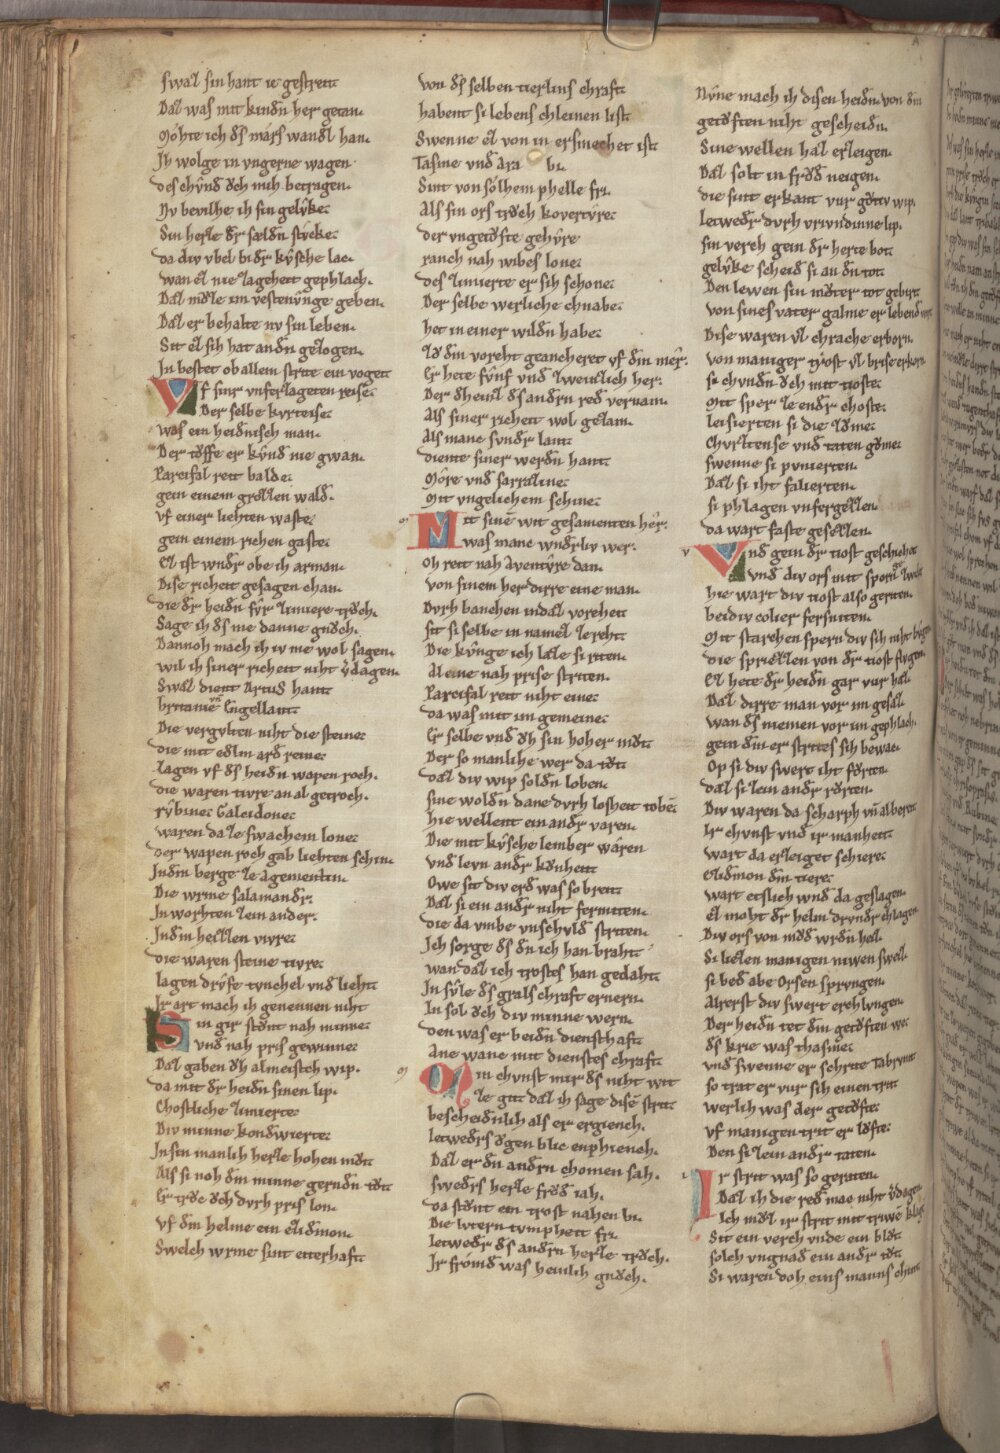 swaz sin hant ie gestreit.
Daz was mit kindn her getan.
Mohte ich ds mars wandl han.
Ih wolge in ungerne wagen.
des chund och mih betragen.
Nv bevilhe ih sin gelvke.
Sin herze dr sældn stvcke.
da div vbel bi dr kvsche lac.
wan ez nie zageheit gephlach.
Daz mvze im vestenvnge geben.
Daz er behalte nv sin leben.
Sit ez sih hat andn gezogen.
In bestet ob allem strite ein voget.
Vf sinr unferzageten reise.
Der selbe kvrteise.
was ein heidnisch man.
Der tovffe er kvnd nie gwan.
Parcifal reit balde.
gein einem grozzen wald.
vf einer liehten waste.
gein einem richen gaste.
Ez ist wndr obe ih arman.
Dise richeit gesagen chan.
die dr heidn fvr zimiere troch.
Sage ih ds me danne gnoch.
Dannoh mach ih iv me wol sagen.
wil ih siner richeit niht vdagen.
Swaz dient Artus hant.
britanie vn Engellant.
Die vergvlten niht die steine.
die mit edlm ard reine.
lagen vf ds heidn wapen roch.
die waren tivre an al getroch.
rvbine Calcidone.
waren da ze swachem lone.
der wapen roch gab liehten schin.
Indm berge ze agementin.
Die wrme salamandr.
In worhten zein ander.
Indm heizzen vivre.
die waren steine tivre.
lagen drvfe tvnchel vnd lieht.
Ir art mach ih genennen niht.
Sin gir stont nah minne.
vnd nah pris gewinne.
Daz gaben oh almeistch wip.
da mit dr heidn sinen lip.
Chostliche zimierte.
Div minne kondwierte.
In sin manlich herze hohen mvt.
Als si noh dm minne gerndn tvt.
Er trvc och dvrh pris lon.
vf dm helme ein ezidimon.
Swelch wrme sint eiterhaft.
von ds selben tierlins chraft.
habent si lebens chleinen list.
Swenne ez von in ersmechet ist.
Tasme vnd Ara bi.
Sint von solhem phelle fri.
Als sin ors troch kovertvre.
der vngetovfte gehvre.
ranch nah wibes lone.
des zimierte er sih schone.
Der selbe werliche chnabe.
het in einer wildn habe.
zo dm voreht geancheret vf dm mer.
Er hete fvnf vnd zweinzich her.
Der dheinz ds andrn red vernam.
Als siner richeit wol gezam.
Als mane svndr lant.
diente siner werdn hant.
More vnd sarrazine.
Mit vngelichem schine.
Mit sine wit gesamenten her.
was mane wndrliv wer.
Oh reit nah aventvre dan.
von sinem her dirre eine man.
Dvrh banchen indaz voreheit.
sit si selbe in namez zereht.
Die kvnge ich laze si riten.
Al eine nah prise striten.
Parcifal reit niht eine.
da was mit im gemeine.
Er selbe vnd oh sin hoher mvt.
Der so manlihe wer da tvt.
daz div wip soldn loben.
sine woldn dane dvrh losheit tobe.
hie wellent ein andr varen.
Die mit kvsche lember waren.
vnd lewn andr konheit.
Owe sit div erd was so breit.
Daz si ein andr niht fermiten.
die da vmbe vnschvld striten.
Ich sorge ds dn ich han braht.
wan daz ich trostes han gedaht.
In svle ds grals chraft ernern.
In sol och div minne wern.
den was er beidn diensthaft.
Ane wane mit dienstes chraft.
Min chvnst mir ds niht wit
ze git daz ih sage dise strit.
bescheidnlich als er ergiench.
Ietweders ogen blic enphiench.
Daz er dn andrn chomen sah.
sweds herze frod iah.
da stont ein trost nahen bi.
Die lvtern tvmpheit fri.
Ietwedr ds andrn herze troch.
Ir fromd was heinlich gnoch.
Nvne mach ih disen heidn von dm
getovften niht gescheidn.
Sine wellen haz erzeigen.
Daz solt in frod neigen.
die sint erkant vur gotiv wip.
Ietwedr dvrh vrivndinne lip.
sin verch gein dr herte bot.
gelvke scheid si an dn tot.
Den lewen sin mvter tot gebirt.
von sines vater galme er lebend wirt.
Dise waren vz chrache erborn.
von maniger tiost vz brise erkorn.
si chvndn och mit tioste.
Mit sper ze endr choste.
leisierten si die zovme.
Chvrztense vnd taten gome.
swenne si pvnierten.
Daz si iht falierten.
si phlagen vnfergezzen.
da wart faste gesezzen.
Vnd gein dr tiost geschichet
vnd div ors mit sporn
hie wart div tiost also geriten.
beidiv colier fersniten.
Mit starchen spern div sih niht bvgen.
die sprizzen von dr tiost flvgen.
Ez hete dr heidn gar vur haz.
Daz dirre man vor im gesaz.
wan ds niemen vor im gephlach.
gein dm er strites sih bewac.
Op si div swert iht forten.
daz si zein andr rorten.
Div waren da scharph vn albereit.
Ir chvnst vnd ir manheit.
wart da erzeiget schiere.
Ezidimon dm tiere.
wart etslich wnd da geslagen.
ez moht dr helm drvndr chlagen.
Div ors von mod wrdn heiz.
Si liezen manigen niwen sweiz.
si bed abe Orsen sprvngen.
Alrerst div swert erchlvngen.
Der heidn tet dm getovften we.
ds krie was thasme.
vnd swenne er schrite Tabrvnit.
so trat er vur sih einen trit.
werlih was der getovfte.
vf manigen trit er lovfte.
Den si zein andr taten.
Ir strit was so geraten.
Daz ih die red mac niht vdagen.
Ich mvz ir strit mit triwe klagen.
Sit ein verch vnde ein blvt.
solch vngnad ein andr tvt.
Si waren doh eins manns chint.